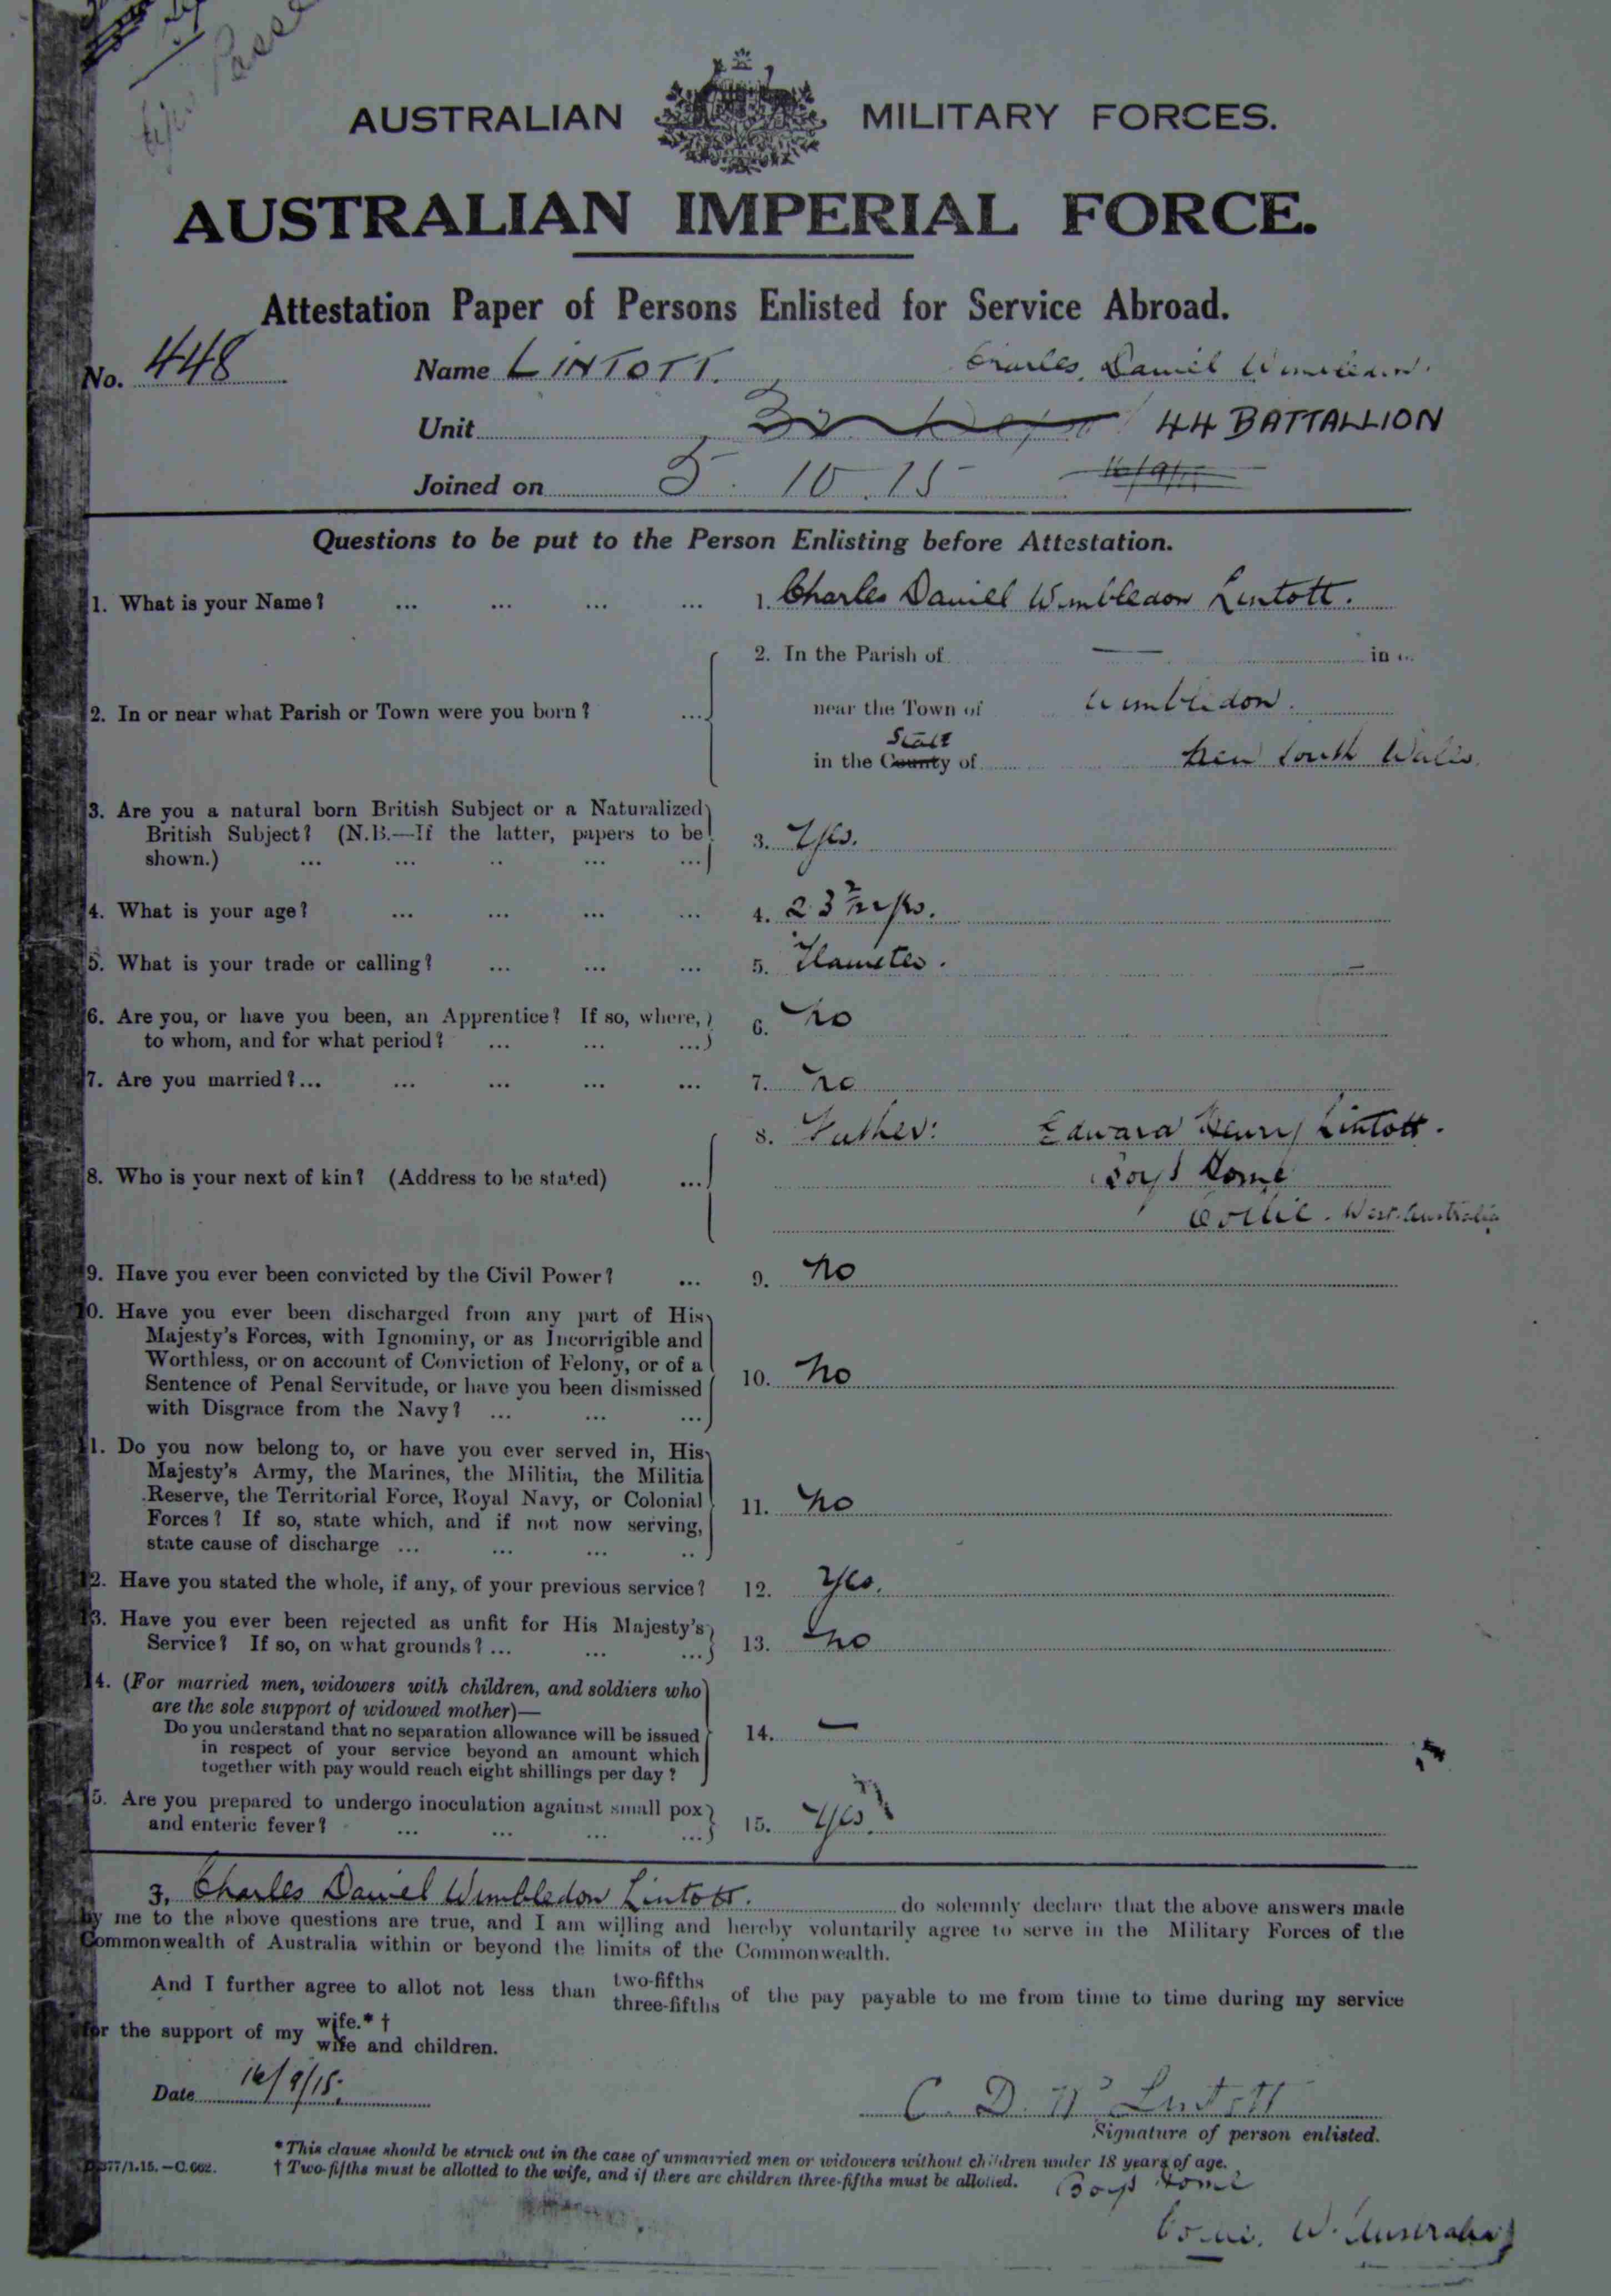 AUSTRALIAN MILITARY FORCES.
AUSTRALIAN IMPERIAL FORCE.
Attestation Paper of Persons Enlisted for Service Abroad.
No. 448 Name LINTOTT. Charles Daniel Wimbledon.
Unit 44 BATTALLION
Joined on 5. 10. 15 16/9/15
Questions to be put to the Person Enlisting before Attestation.
1. What is your Name? ... ... ... ... 1. Charles Daniel Wimbledon Lintott.
2. In the Parish of — in
2. In or near what Parish or Town were you born? ... near the Town of Wimbledon.
State
in the County of New South Wales.
3. Are you a natural born British Subject or a Naturalized
British Subject? (N.B.—If the latter, papers to be 3. Yes.
shown.) ... ... .. ... ...
4. What is your age? ... ... ... ... 4. 23
5. What is your trade or calling? ... ... ... 5.
6. Are you, or have you been, an Apprentice? If so, where, 6. No
to whom, and for what period? ... ... ...
7. Are you married?... ... ... ... ... 7. No
8. Father: Edward Henry Lintott.
8. Who is your next of kin? (Address to be stated) ... Boys Home
Collie. West Australia
9. Have you ever been convicted by the Civil Power? ... 9. No
10. Have you ever been discharged from any part of His
Majesty's Forces, with Ignominy, or as Incorrigible and
Worthless, or on account of Conviction of Felony, or of a
Sentence of Penal Servitude, or have you been dismissed 10. No
with Disgrace from the Navy? ... ... ...
11. Do you now belong to, or have you ever served in, His
Majesty's Army, the Marines, the Militia, the Militia
Reserve, the Territorial Force, Royal Navy, or Colonial 11. No
Forces? If so, state which, and if not now serving,
state cause of discharge ... ... ... ..
12. Have you stated the whole, if any, of your previous service? 12. Yes.
13. Have you ever been rejected as unfit for His Majesty's
Service? If so, on what grounds? ... ... ... 13. No
14. (For married men, widowers with children, and soldiers who
are the sole support of widowed mother)—
Do you understand that no separation allowance will be issued 14. —
in respect of your service beyond an amount which
together with pay would reach eight shillings per day?
15. Are you prepared to undergo inoculation against small pox
and enteric fever? ... ... ... ... 15. Yes.
I, Charles Daniel Wimbledon Lintott. do solemnly declare that the above answers made
by me to the above questions are true, and I am willing and hereby voluntarily agree to serve in the Military Forces of the
Commonwealth of Australia within or beyond the limits of the Commonwealth.
And I further agree to allot not less than two-fifths
three-fifths of the pay payable to me from time to time during my service
for the support of my wife.* †
wife and children.
Date 16/9/15. C. D. W Lintott
Signature of person enlisted.
* This clause should be struck out in the case of unmarried men or widowers without children under 18 years of age.
377/1.15.—C.662. † Two-fifths must be allotted to the wife, and if there are children three-fifths must be allotted.
Boys Home
Collie. W. Australia